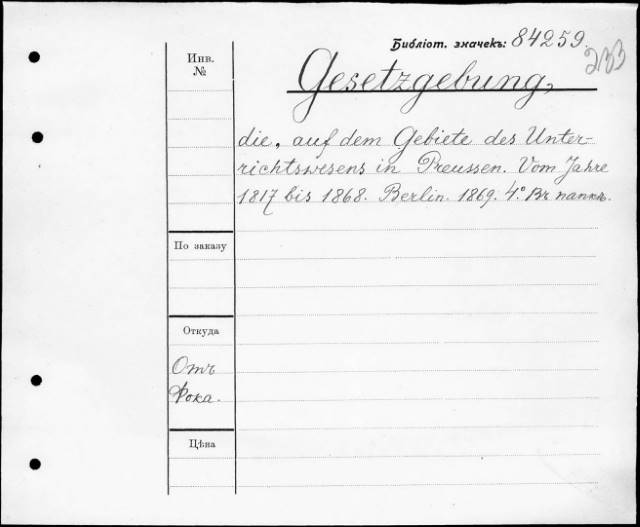 Библіот. значекъ: 84259.
233
Инв. №
Gesetzgebung,
die, auf dem Gebiete des Unter-
richtswesens in Preussen. Vom Jahre
1817 bis 1868. Berlin. 1869. 4° Въ папкѣ.
По заказу
Откуда
Отъ
Фока.
Цѣна